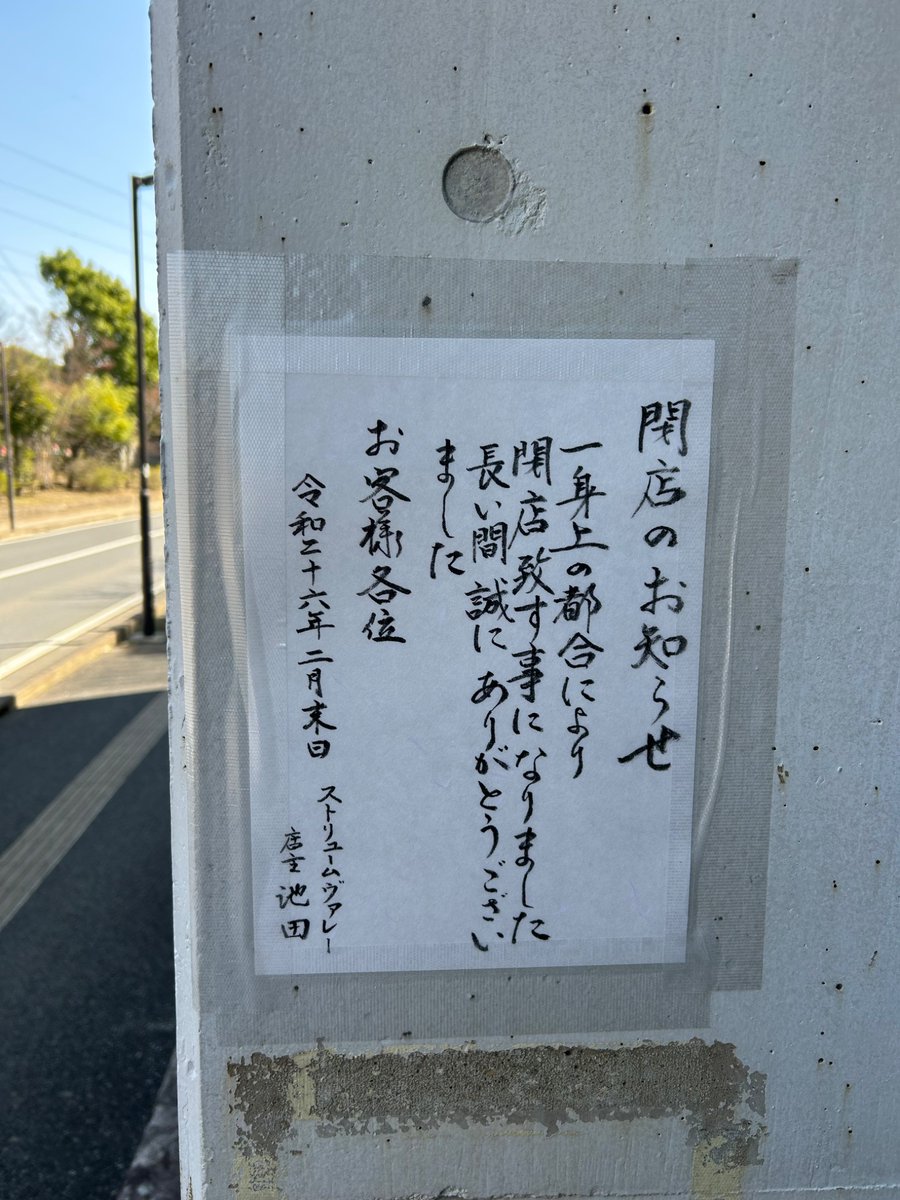 閉店のお知らせ
一身上の都合により
閉店致す事になりました
長い間誠にありがとうござい
ました
お客様各位
令和二十六年二月末日
ストリュームヴァレー
店主 池田